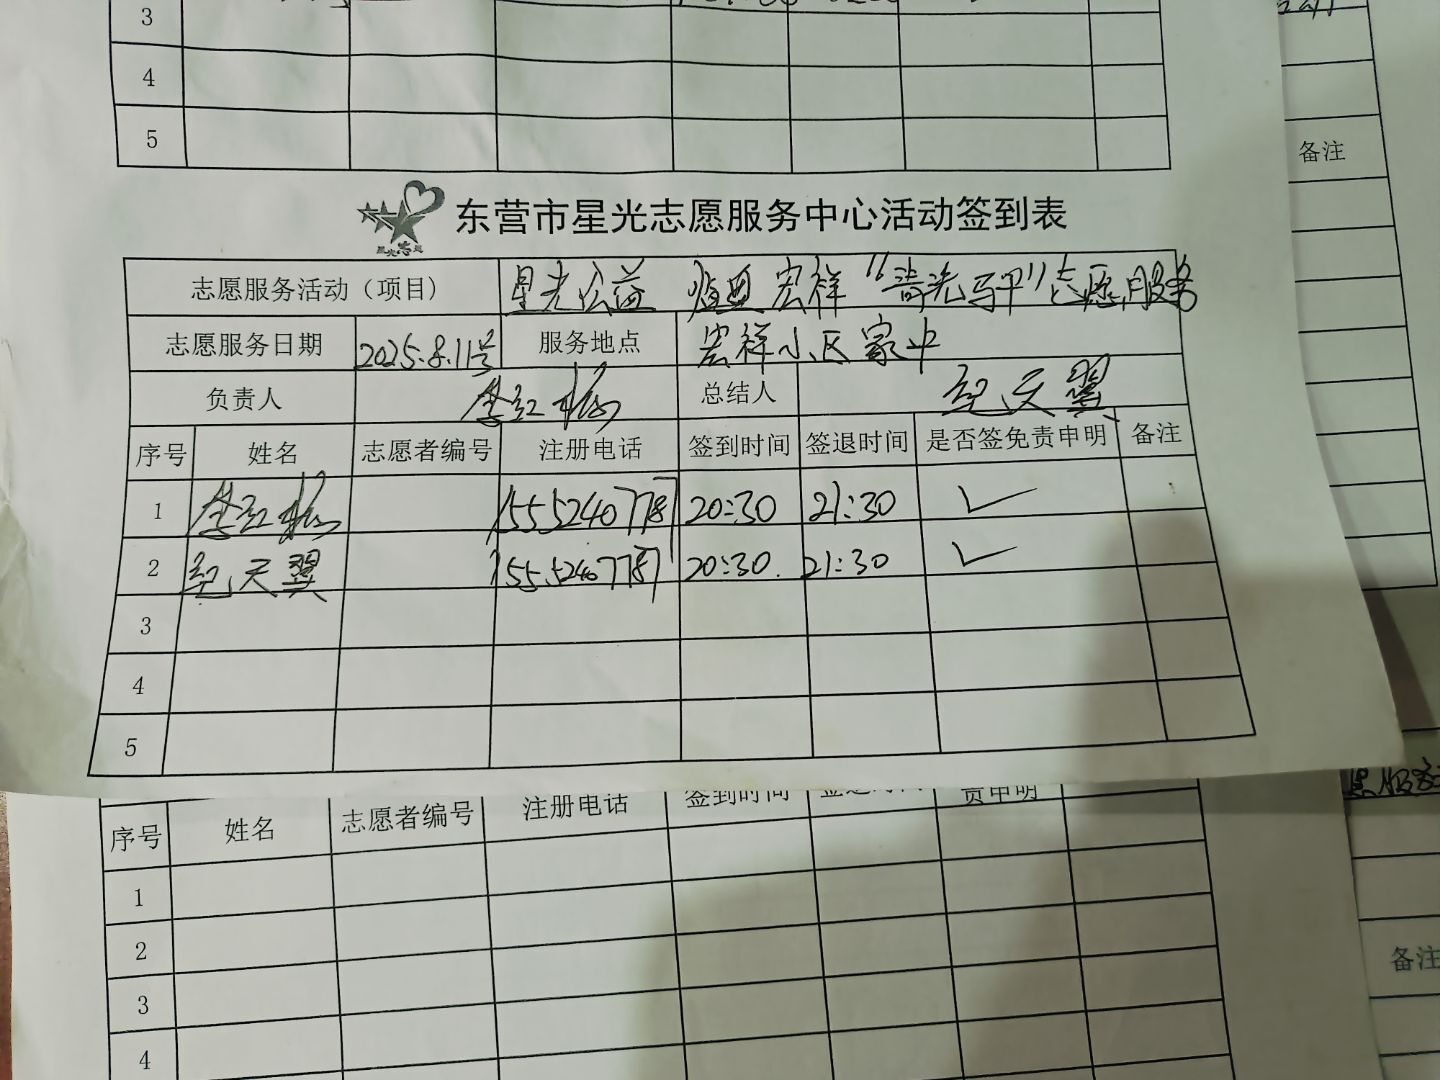 3
4
5
备注
东营市星光志愿服务中心活动签到表
志愿服务活动（项目） 星光公益 恒典宏祥“清洗马甲”志愿服务
志愿服务日期 2025.8.11号 服务地点 宏祥小区家中
负责人 李红梅 总结人 纪天翼
序号 姓名 志愿者编号 注册电话 签到时间 签退时间 是否签免责申明 备注
1 李红梅 15552407787 20:30 21:30 ✓
2 纪天翼 15552407787 20:30 21:30 ✓
3
4
5
序号 姓名 志愿者编号 注册电话 签到时间 签退时间 责申明
1
2
备注
3
4